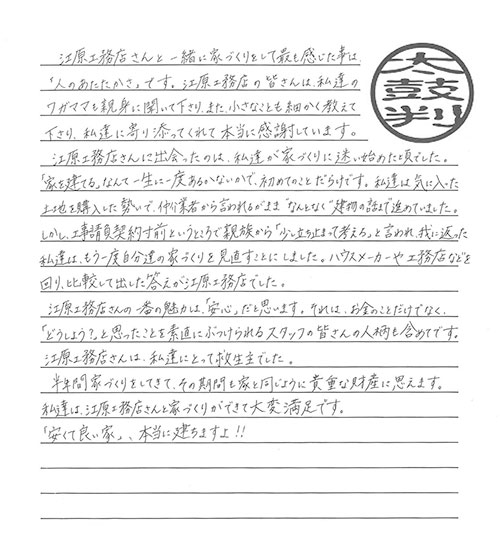 江原工務店さんと一緒に家づくりをして最も感じた事は、
「人のあたたかさ」です。江原工務店の皆さんは、私達の
ワガママも親身に聞いて下さり、また、小さなことも細かく教えて
下さり、私達に寄り添ってくれて本当に感謝しています。
太鼓判
江原工務店さんに出会ったのは、私達が家づくりに迷い始めた頃でした。
「家を建てる」なんて一生に一度あるかないかで、初めてのことだらけです。私達は気に入った
土地を購入した勢いで、仲介業者から言われるがまま“なんとなく”建物の話まで進めていました。
しかし、工事請負契約寸前というところで親族から「少し立ち止まって考えろ」と言われ、我に返った
私達は、もう一度自分達の家づくりを見直すことにしました。ハウスメーカーや工務店などを
回り、比較して出した答えが江原工務店でした。
江原工務店さんの一番の魅力は、「安心」だと思います。それは、お金のことだけでなく、
「どうしよう?」と思ったことを素直にぶつけられるスタッフの皆さんの人柄も含めてです。
江原工務店さんは、私達にとって救世主でした。
半年間家づくりをしてきて、その期間も家と同じように貴重な財産に思えます。
私達は、江原工務店さんと家づくりができて大変満足です。
「安くて良い家」、本当に建ちますよ!!